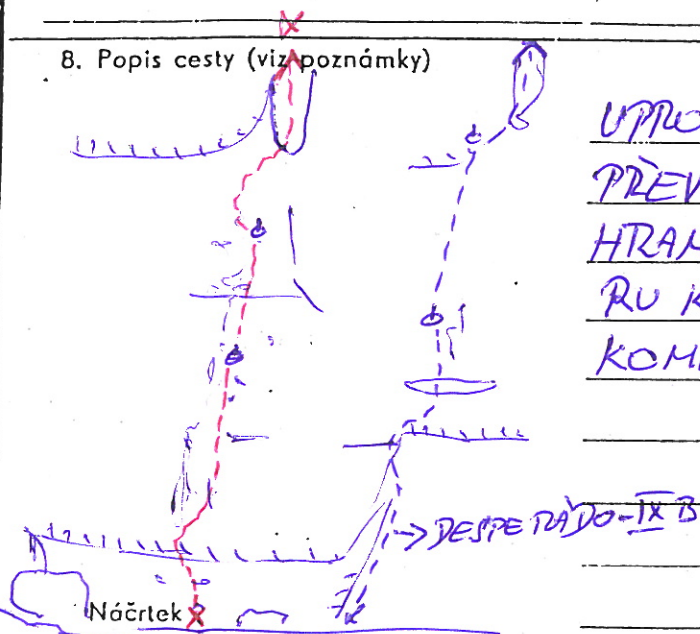 8. Popis cesty (viz poznámky)
UPRO
PŘEV
HRAN
RU K
KOM
DESPERÁDO-IXB
Náčrtek